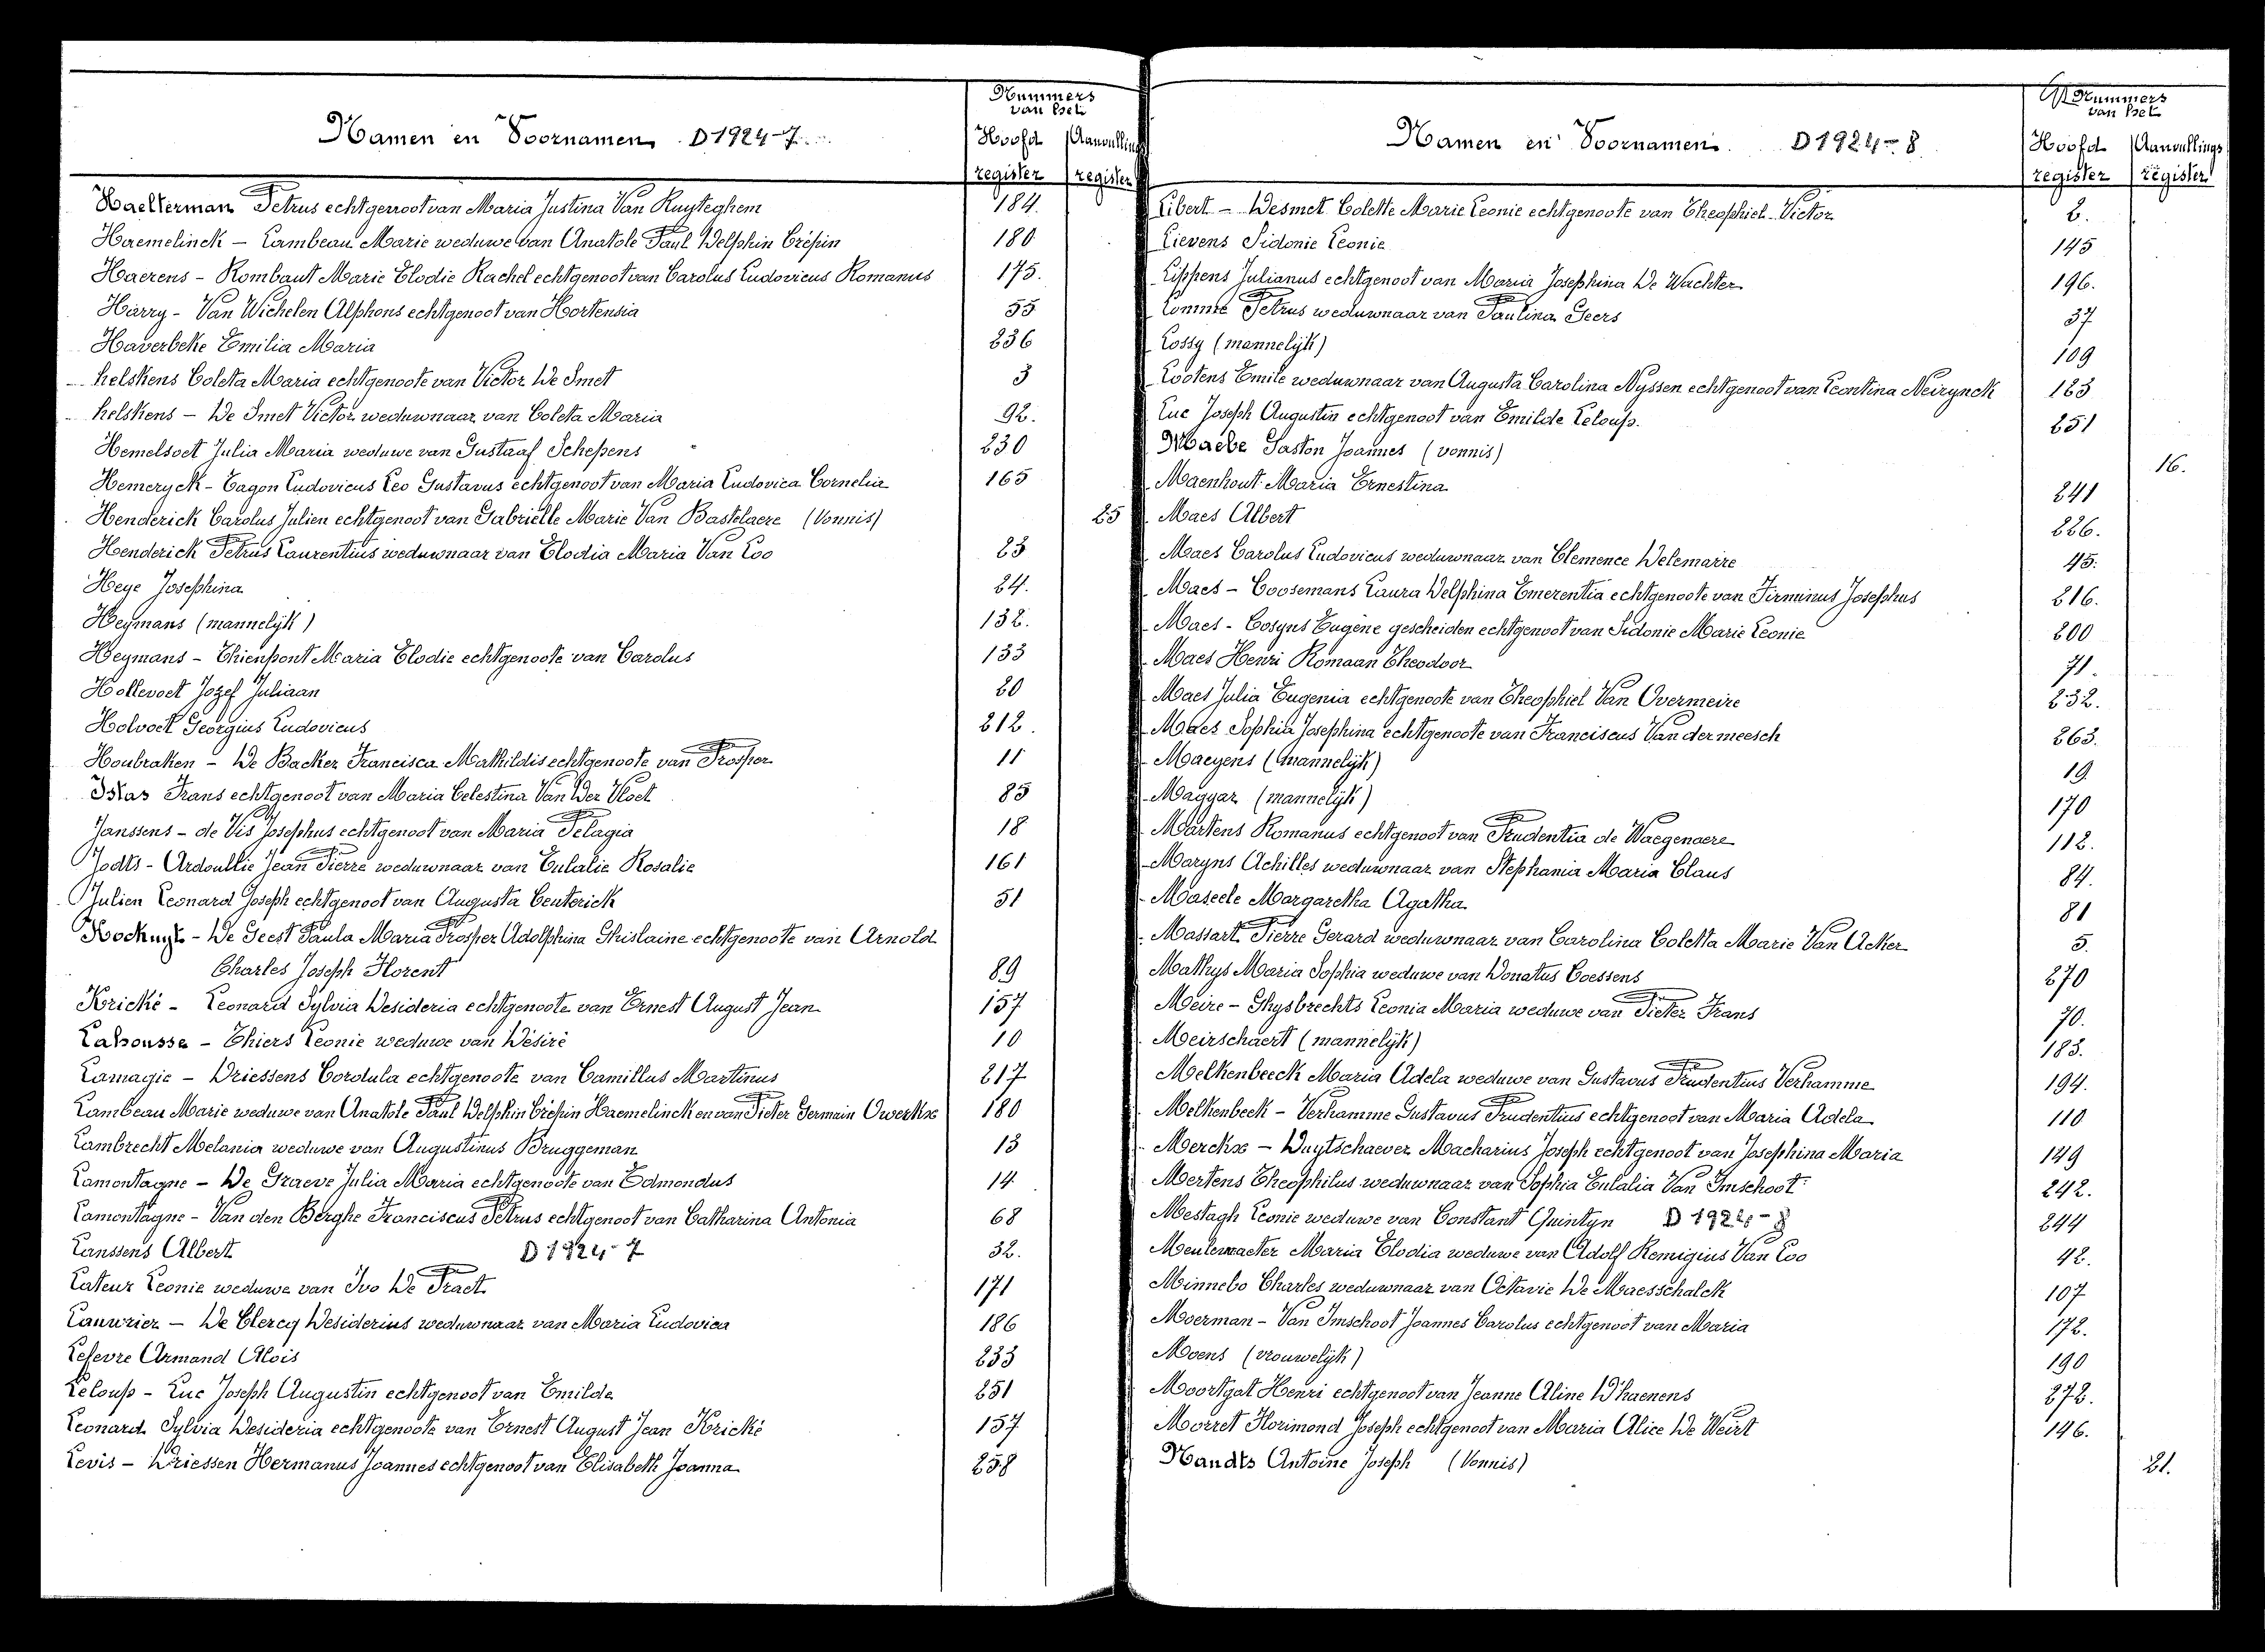 Nummers
van het
Namen en Voornamen D 1924-7
Hoofd register
Aanvullings register
Haelterman Petrus echtgenoot van Maria Justina Van Ruyteghem 184.
Haemelinck - Lambeau Marie weduwe van Anatole Paul Delphin Crépin 180
Haerens - Rombaut Marie Elodie Rachel echtgenoot van Carolus Ludovicus Romanus 175.
Harry - Van Wichelen Alphons echtgenoot van Hortensia 55
Haverbeke Emilia Maria 236
helskens Coleta Maria echtgenoote van Victor De Smet 3
helskens - De Smet Victor weduwnaar van Coleta Maria 92.
Hemelsoet Julia Maria weduwe van Gustaaf Schepens 230
Hemeryck - Cagon Ludovicus Leo Gustavus echtgenoot van Maria Ludovica Cornelia 165
Henderick Carolus Julien echtgenoot van Gabrielle Marie Van Bastelaere (Vonnis) 25
Henderick Petrus Laurentius weduwnaar van Elodia Maria Van Loo 23
Heye Josephina 24.
Heymans (mannelijk) 132.
Heymans - Thienpont Maria Elodie echtgenoote van Carolus 133
Hollevoet Jozef Juliaan 20
Holvoet Georgius Ludovicus 212.
Houbraken - De Backer Francisca Mathildis echtgenoote van Prosper 11
Istas Frans echtgenoot van Maria Celestina Van Der Vloet 85
Janssens - de Vis Josephus echtgenoot van Maria Pelagia 18
Jodts - Ardoullie Jean Pierre weduwnaar van Eulalie Rosalie 161
Julien Leonard Joseph echtgenoot van Augusta Centerick 51
Kockuyt - De Geest Paula Maria Prosper Adolphina Ghislaine echtgenoote van Arnold
Charles Joseph Florent 89
Krické - Leonard Sylvia Desideria echtgenoote van Ernest August Jean 157
Lahousse - Thiers Leonie weduwe van Désiré 10
Lamagie - Driessens Cordula echtgenoote van Camillus Martinus 217
Lambeau Marie weduwe van Anatole Paul Delphin Crépin Haemelinck en van Pieter Germain Owerkx 180
Lambrecht Melania weduwe van Augustinus Bruggeman 13
Lamontagne - De Graeve Julia Maria echtgenoote van Edmondus 14
Lamontagne - Van den Berghe Franciscus Petrus echtgenoot van Catharina Antonia 68
Lanssens Albert D 1924-7 32.
Lateur Leonie weduwe van Ivo De Praet 171
Lauwrier - De Clercq Desiderius weduwnaar van Maria Ludovica 186
Lefevre Armand Alois 233
Leloup - Luc Joseph Augustin echtgenoot van Emilde 251
Leonard Sylvia Desideria echtgenoote van Ernest August Jean Krické 157
Levis - Driessen Hermanus Joannes echtgenoot van Elisabeth Joanna 258
Nummers
van het
Namen en Voornamen. D 1924-8
Hoofd register
Aanvullings register
Libert - Desmet Colette Marie Leonie echtgenoote van Theophiel Victor 2.
Lievens Sidonie Leonie 145
Lippens Julianus echtgenoot van Maria Josephina De Wachter 196.
Lomme Petrus weduwnaar van Paulina Geers 37
Lossy (mannelijk) 109
Lootens Emile weduwnaar van Augusta Carolina Nyssen echtgenoot van Leontina Neirynck 123
Luc Joseph Augustin echtgenoot van Emilde Leloup. 251
Maebe Gaston Joannes (vonnis) 16.
Maenhout Maria Ernestina 241
Maes Albert 226.
Maes Carolus Ludovicus weduwnaar van Clemence Delemarre 45.
Maes - Coosemans Laura Delphina Emerentia echtgenoote van Firminus Josephus 216.
Maes - Cosyns Eugène gescheiden echtgenoot van Sidonie Marie Leonie 200
Maes Henri Romaan Theodoor 71.
Maes Julia Eugenia echtgenoote van Theophiel Van Overmeire 232.
Maes Sophia Josephina echtgenoote van Franciscus Van der meesch 263.
Maeyens (mannelijk) 19
Magyar (mannelijk) 170
Martens Romanus echtgenoot van Prudentia de Waegenaere 112.
Maryns Achilles weduwnaar van Stephania Maria Claus 84.
Maseele Margaretha Agatha 81
Massart Pierre Gerard weduwnaar van Carolina Coletta Marie Van Acker 5.
Mathys Maria Sophia weduwe van Donatus Coessens 270
Meire - Ghysbrechts Leonia Maria weduwe van Pieter Frans 70.
Meirschaert (mannelijk) 183.
Melkenbeeck Maria Adela weduwe van Gustavus Prudentius Verhamme 194.
Melkenbeek - Verhamme Gustavus Prudentius echtgenoot van Maria Adela 110
Merckx - Duytschaever Macharius Joseph echtgenoot van Josephina Maria 149
Mertens Theophilus weduwnaar van Sophia Eulalia Van Imschoot 242.
Mestagh Leonie weduwe van Constant Quintyn D 1924-8 244
Meulemaeter Maria Elodia weduwe van Adolf Remigius Van Loo 42.
Minnebo Charles weduwnaar van Octavie De Maesschalck 107
Moerman - Van Imschoot Joannes Carolus echtgenoot van Maria 172.
Moens (vrouwelijk) 190
Moortgat Henri echtgenoot van Jeanne Aline D'haenens 272.
Morret Florimond Joseph echtgenoot van Maria Alice De Weirt 146.
Nandts Antoine Joseph (Vonnis) 21.